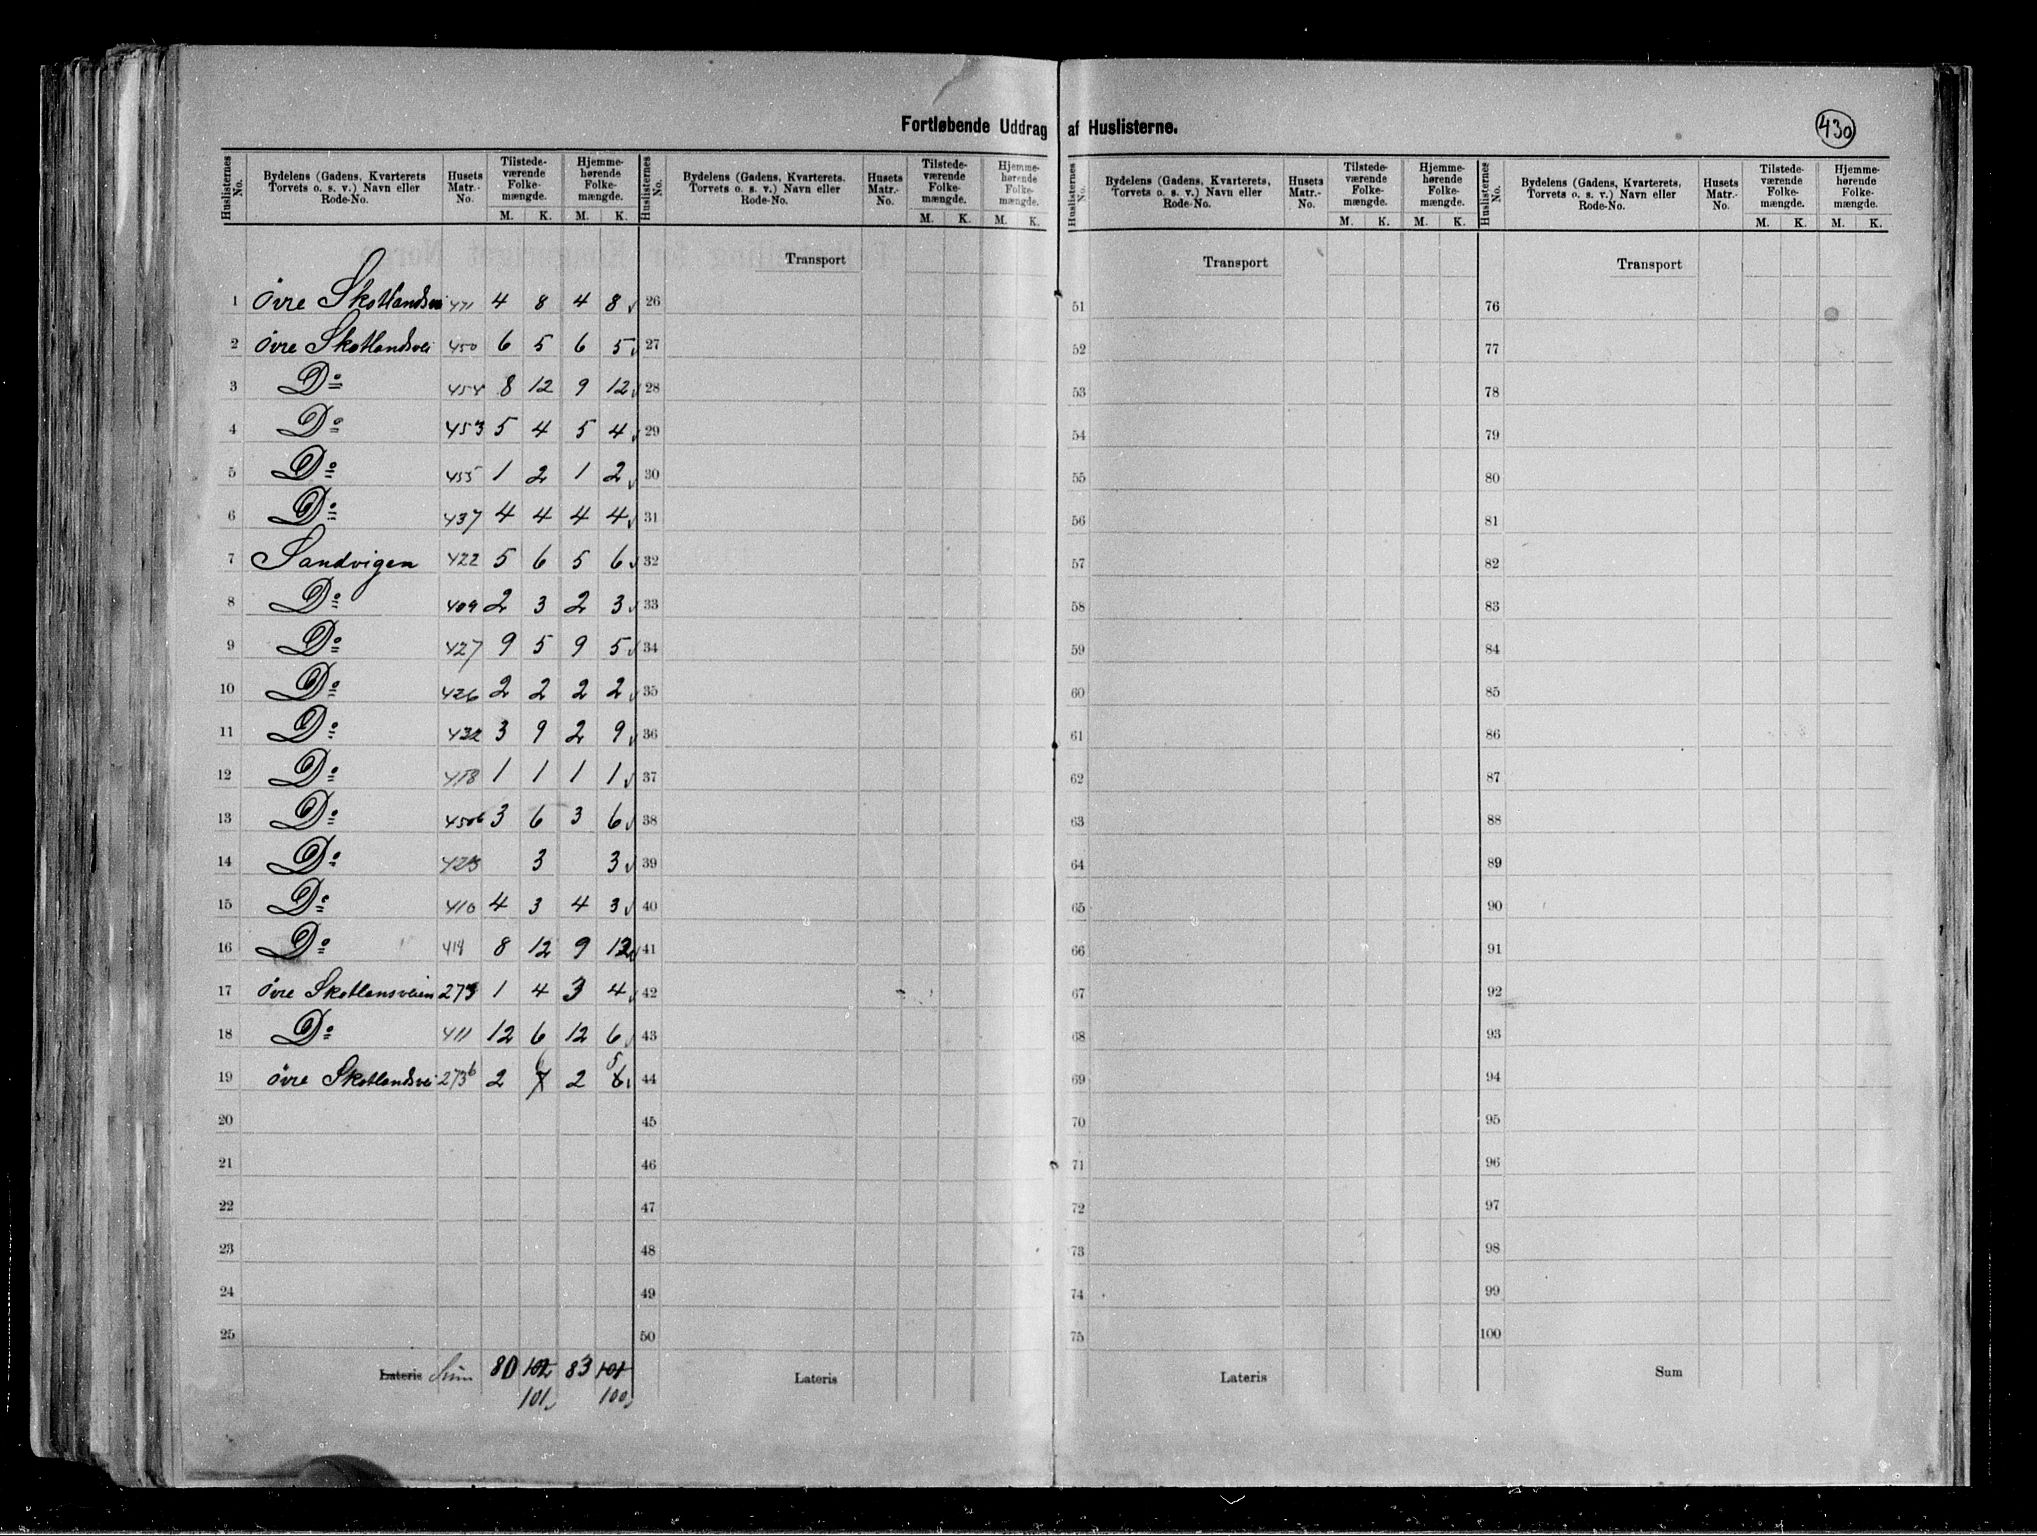 Fortløbende Uddrag af Huslisterne.
430
Huslisternes No. | Bydelens (Gadens, Kvarterets Torvets o. s. v.) Navn eller Rode-No. | Husets Matr.-No. | Tilstede-værende Folke-mængde. M. K. | Hjemme-hørende Folke-mængde. M. K.
Huslisternes No. | Bydelens (Gadens, Kvarterets, Torvets o. s. v.) Navn eller Rode-No. | Husets Matr.-No. | Tilstede-værende Folke-mængde. M. K. | Hjemme-hørende Folke-mængde. M. K.
Huslisternes No. | Bydelens (Gadens, Kvarterets, Torvets o. s. v.) Navn eller Rode-No. | Husets Matr.-No. | Tilstede-værende Folke-mængde. M. K. | Hjemme-hørende Folke-mængde. M. K.
Huslisternes No. | Bydelens (Gadens, Kvarterets, Torvets o. s. v.) Navn eller Rode-No. | Husets Matr.-No. | Tilstede-værende Folke-mængde. M. K. | Hjemme-hørende Folke-mængde. M. K.
Transport Transport Transport
1 Øvre Skotlandsvei 471 4 8 4 8 26 51 76
2 Øvre Skotlandsvei 450 6 5 6 5 27 52 77
3 Do 454 8 12 9 12 28 53 78
4 Do 453 5 4 5 4 29 54 79
5 Do 455 1 2 1 2 30 55 80
6 Do 437 4 4 4 4 31 56 81
7 Sandvigen 422 5 6 5 6 32 57 82
8 Do 409 2 3 2 3 33 58 83
9 Do 427 9 5 9 5 34 59 84
10 Do 426 2 2 2 2 35 60 85
11 Do 432 3 9 2 9 36 61 86
12 Do 418 1 1 1 1 37 62 87
13 Do 450b 3 6 3 6 38 63 88
14 Do 3 3 39 64 89
15 Do 410 4 3 4 3 40 65 90
16 Do 8 12 9 12 41 66 91
17 Øvre Skotlansveien 273 1 4 3 4 42 67 92
18 Do 411 12 6 12 6 43 68 93
19 Øvre Skotlandsvei 273b 2 7 6 2 6 5 44 69 94
20 45 70 95
21 46 71 96
22 47 72 97
23 48 73 98
24 49 74 99
25 50 75 100
Lateris Sum 80 102 83 101 Lateris Lateris Sum
101 100